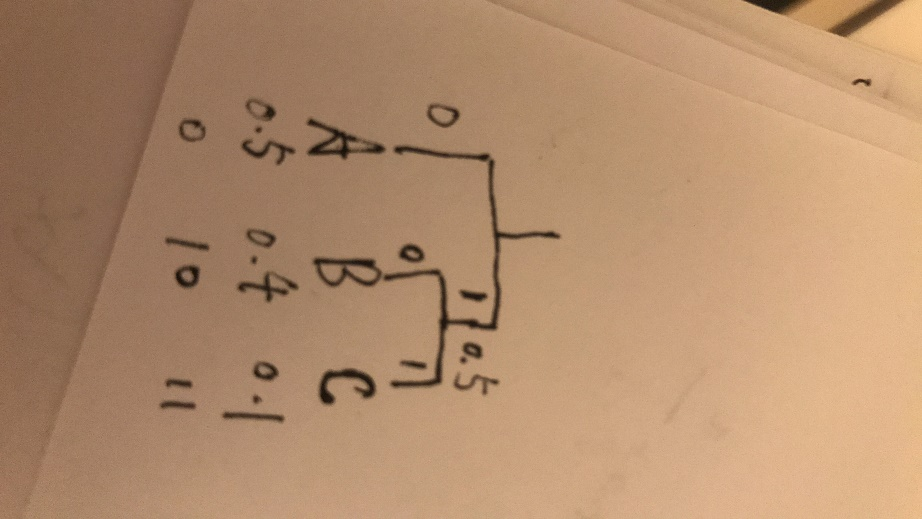 0 1
0.5
0 1
A B C
0.5 0.4 0.1
0 10 11